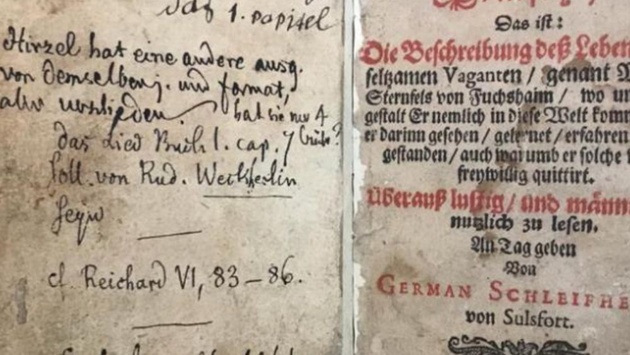 das 1. Kapitel
Hirzel hat eine andere ausg.
von demselben j. und format,
aber verschieden. hat sie nur 4
das Lied Buch 1. cap. 7
soll von Rud. Weckherlin
seyn
cf. Reichard VI, 83–86.
Das ist:
Die Beschreibung deß Leben
seltzamen Vaganten / genant
Sternfels von Fuchshaim / wo un
gestalt Er nemlich in diese Welt kom
er darinn gesehen / gelernet / erfahren
gestanden / auch warumb er solche
freywillig quittirt.
Überauß lustig / und männ
nutzlich zu lesen.
An Tag geben
Von
GERMAN SCHLEIFHE
von Sulsfort.